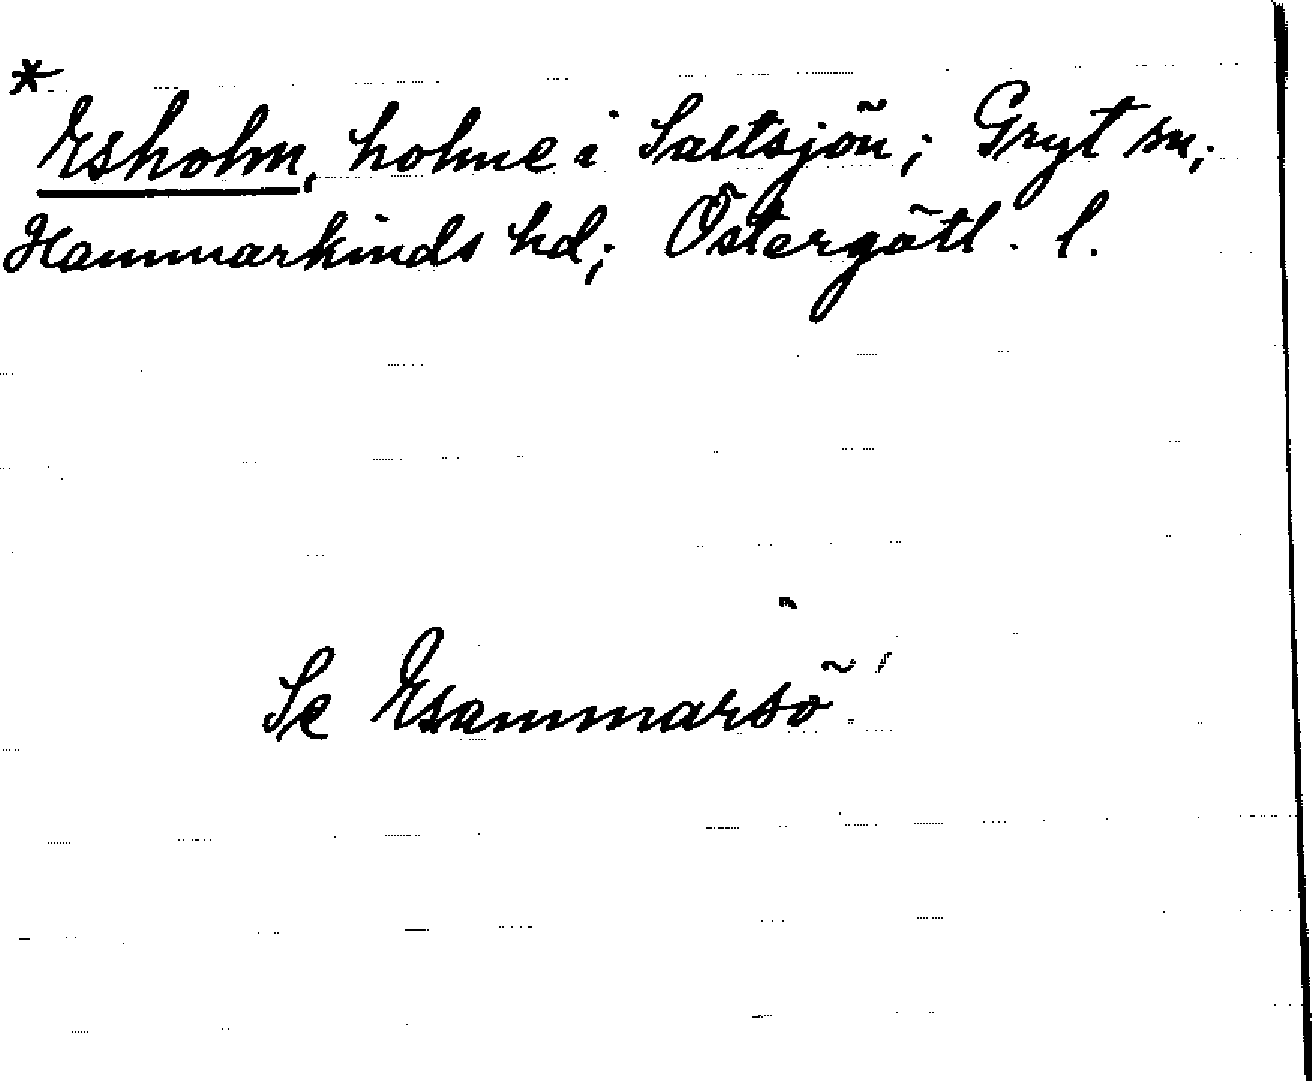 *
Esholm, holme i Saltsjön; Gryt sn;
Hammarkinds hd; Östergötl. l.
Se Esammarsö